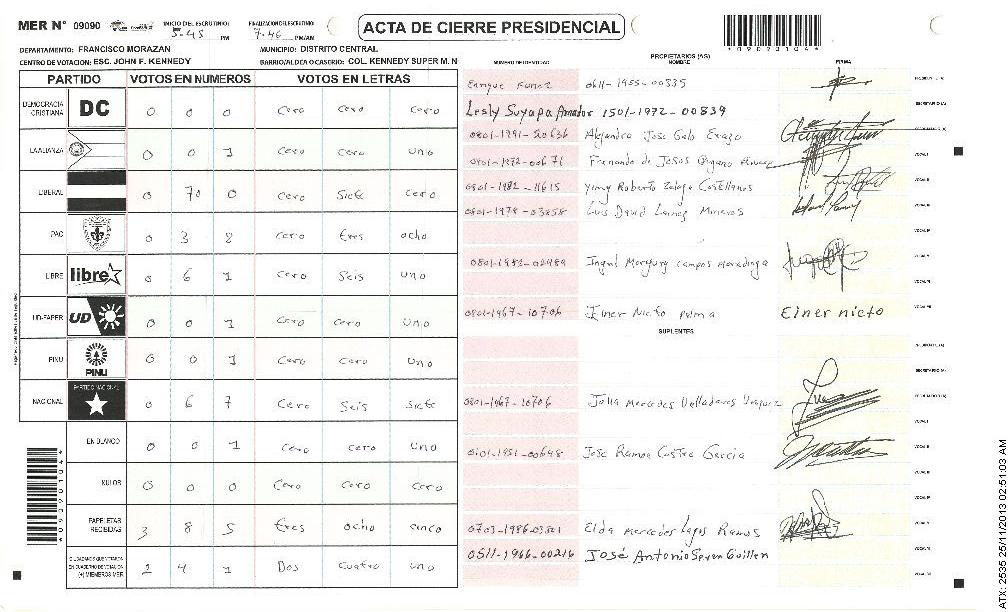 MER N° 09090 INICIO DEL ESCRUTINIO: 5-45 PM FINALIZACION DEL ESCRUTINIO: 7-46 PM/AM ACTA DE CIERRE PRESIDENCIAL
DEPARTAMENTO: FRANCISCO MORAZAN MUNICIPIO: DISTRITO CENTRAL
CENTRO DE VOTACION: ESC. JOHN F. KENNEDY BARRIO/ALDEA O CASERIO: COL. KENNEDY SUPER M. N
PARTIDO VOTOS EN NUMEROS VOTOS EN LETRAS
DEMOCRACIA CRISTIANA DC 0 0 0 Cero Cero Cero
LA ALIANZA 0 0 1 Cero Cero uno
LIBERAL 0 70 0 Cero Siete Cero
PAC 0 3 8 Cero tres ocho
LIBRE libre 0 6 1 Cero Seis uno
UD-FAPER UD 0 0 1 Cero Cero uno
PINU PINU 0 0 1 Cero Cero uno
NACIONAL PARTIDO NACIONAL 0 6 7 Cero Seis Siete
EN BLANCO 0 0 1 Cero Cero uno
NULOS 0 0 0 Cero Cero Cero
PAPELETAS RECIBIDAS 3 8 5 tres ocho cinco
CIUDADANOS QUE VOTARON EN CUADERNO DE VOTACION (+) MIEMBROS MER 2 4 1 Dos Cuatro uno
NUMERO DE IDENTIDAD PROPIETARIOS (AS) NOMBRE FIRMA
Enrique Funez 0611-1955-00335
Lesly Suyapa Amador 1501-1972-00839
0801-1991-20636 Alejandro Jose Galo Erazo
0801-1972-00671 Fernando de Jesus
0801-1982-11615 Yimy Roberto Zelaya Castellanos
0801-1979-03258 Luis David Lainez Mineros
0801-1982-02989 Ingrid Margury Campos Maradiaga
0801-1967-10706 Einer Nieto Einer nieto
SUPLENTES
0801-1967-10706 Julia Mercedes Valladares Vasquez
0101-1951-00648 Jose Ramon Castro Garcia
0703-1986-03301 Elda Mercedes Lagos Ramos
0511-1966-00216 José Antonio Guillen
*09090104*
ATX: 2535 25/11/2013 02:51:03 AM